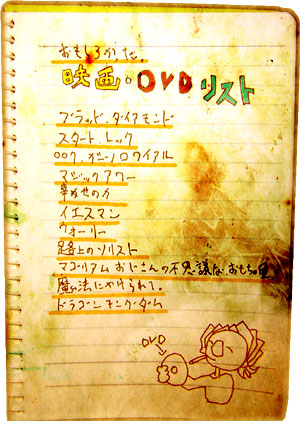 おもしろかった。
映画・DVDリスト
ブラッド・ダイアモンド
スタートレック
007 カジノロワイアル
マジックアワー
幸せのカ
イエスマン
ウォーリー
路上のソリスト
マゴリアムおじさんの不思議なおもちゃ屋
魔法にかけられて。
ドラゴンキングダム
DVD